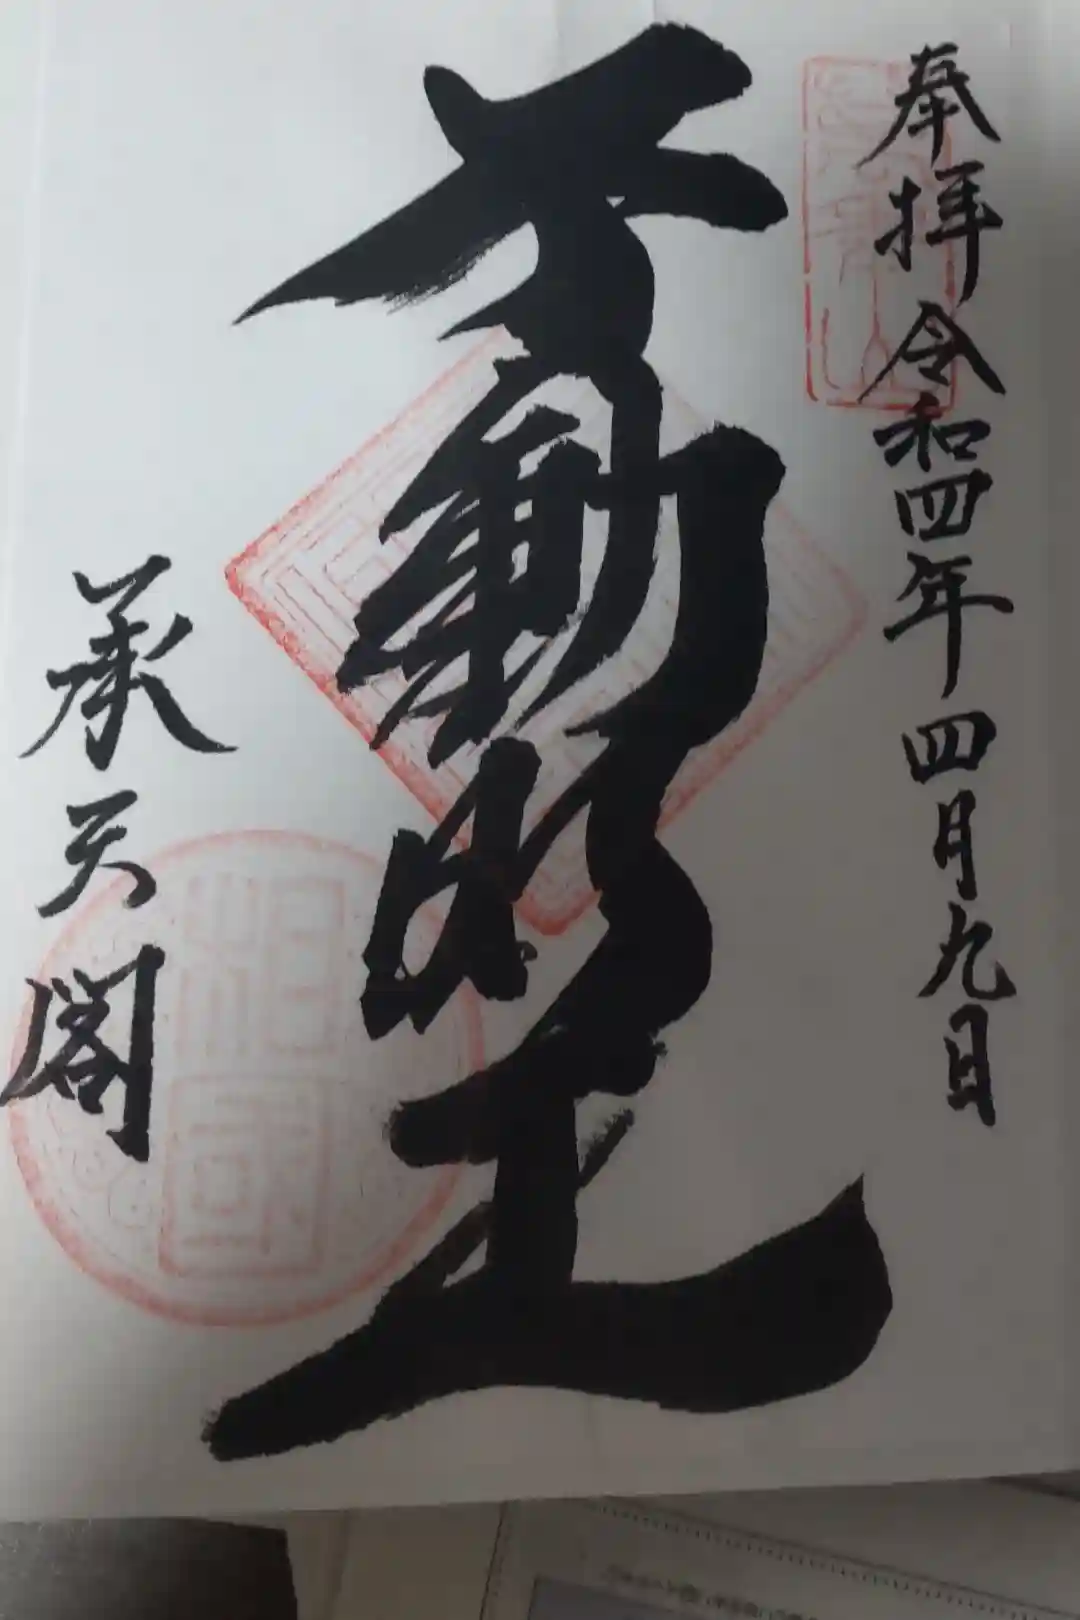 奉拝 令和四年 四月九日
不動明王
承天閣
相国